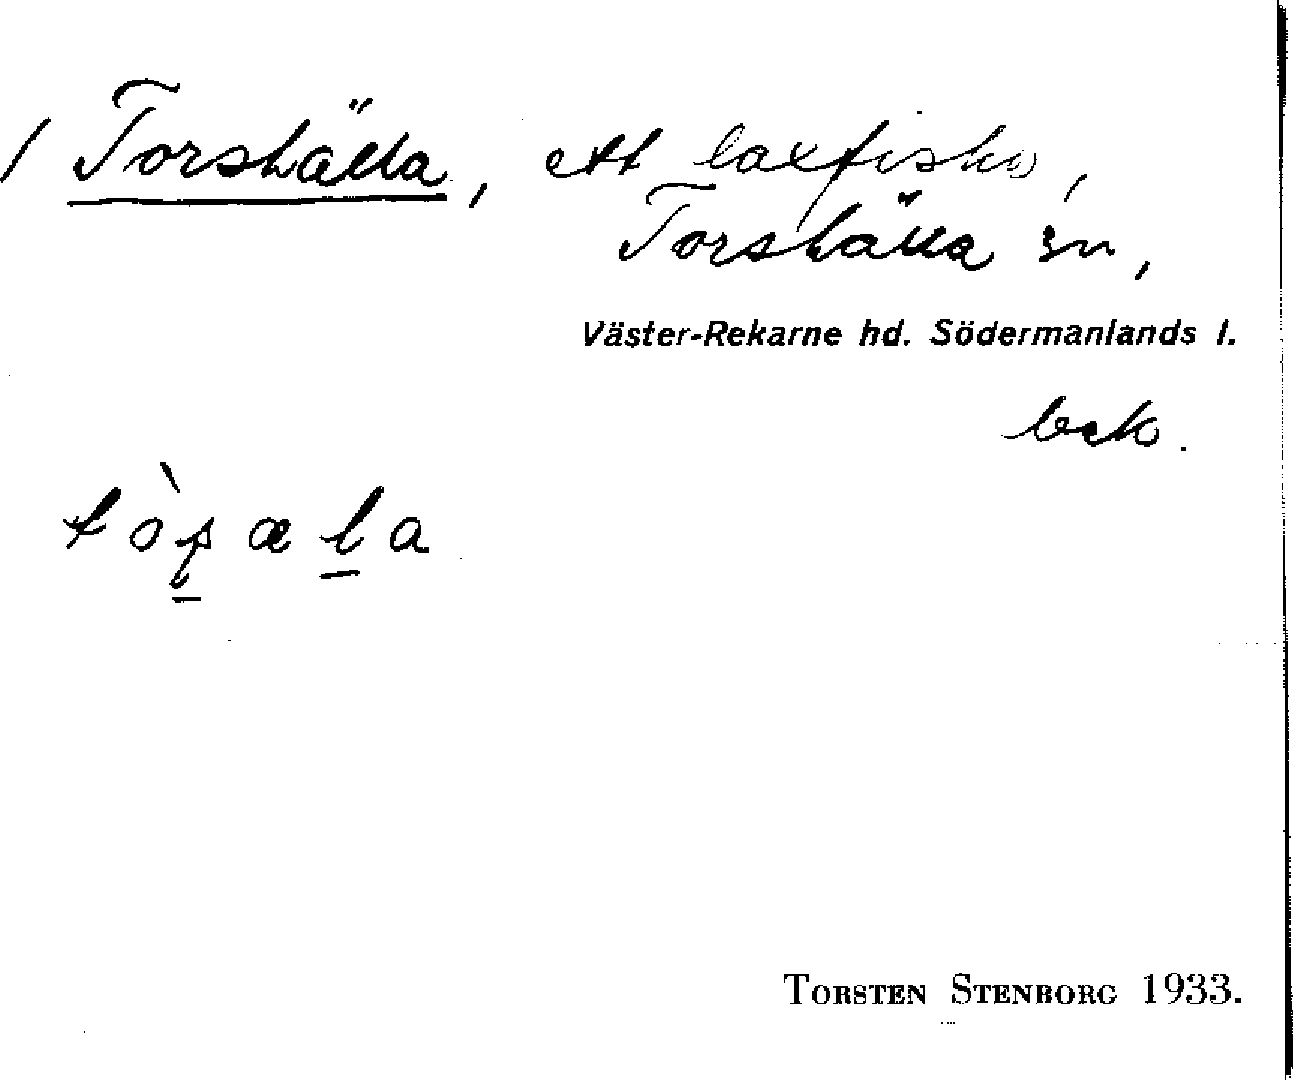 / Torshälla, ett laxfiske,
Torshälla sn,
Väster-Rekarne hd. Södermanlands l.
bek.
TORSTEN STENBORG 1933.